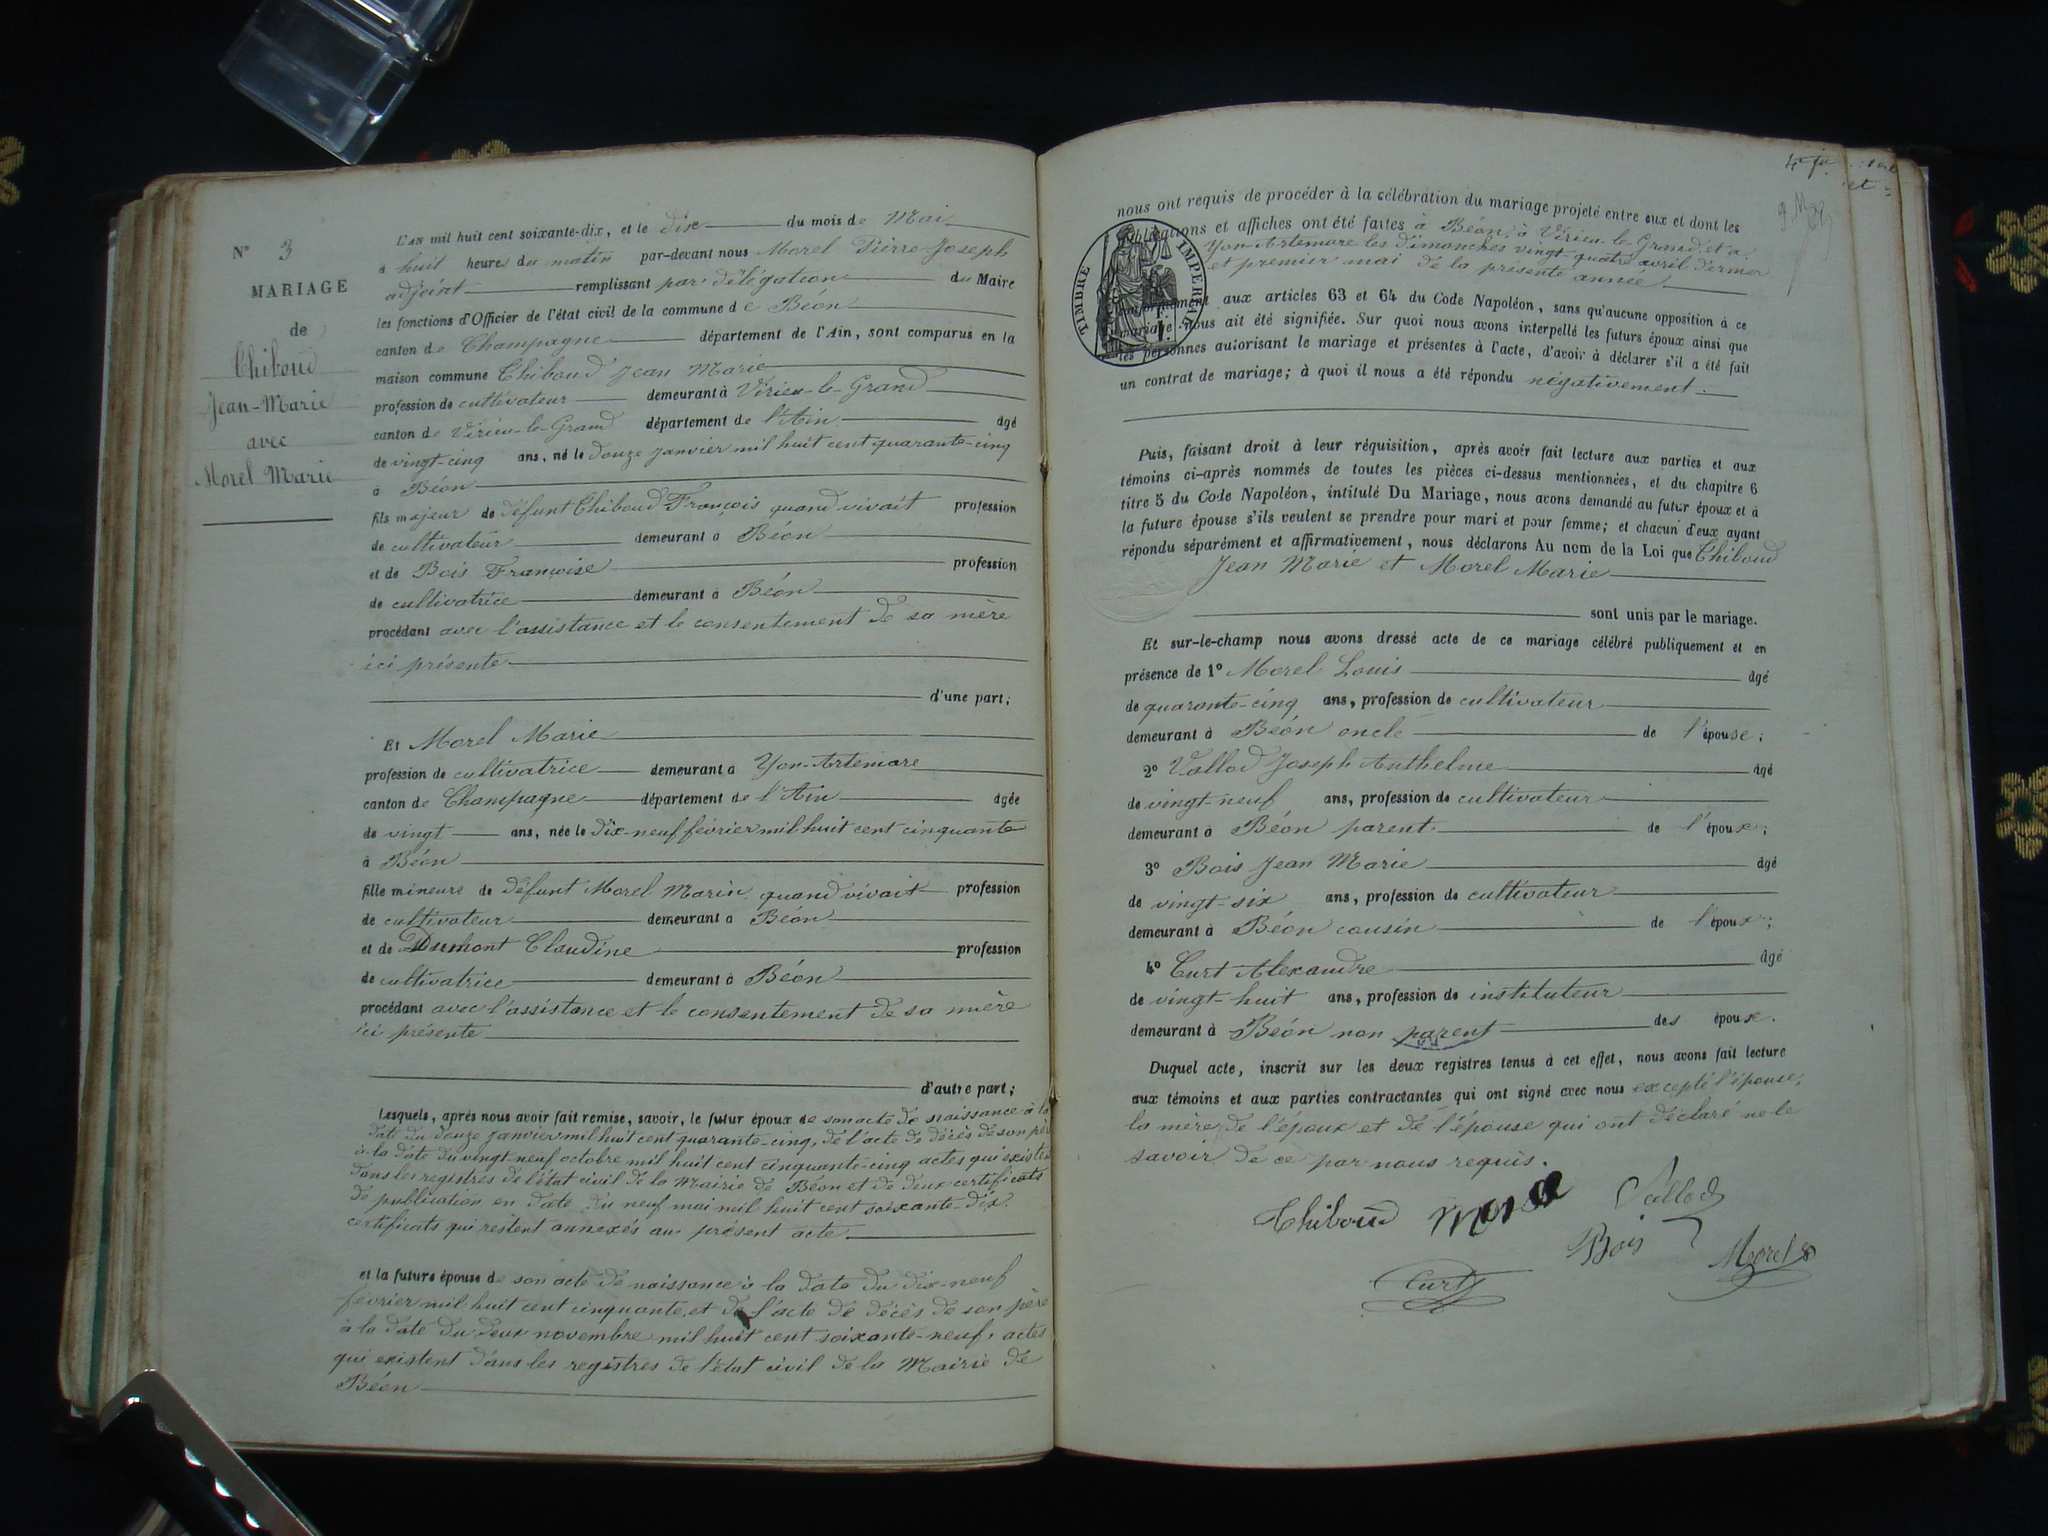 N° 3
MARIAGE
de
Thiboud
Jean-Marie
avec
Morel Marie
L'AN mil huit cent soixante-dix, et le dix du mois de Mai
à huit heures du matin par-devant nous Morel Pierre-Joseph
adjoint remplissant par délégation du Maire
les fonctions d'Officier de l'état civil de la commune de Béon
canton de Champagne département de l'Ain, sont comparus en la
maison commune Thiboud Jean Marie
profession de cultivateur demeurant à Virieu-le-Grand
canton de Virieu-le-Grand département de l'Ain âgé
de vingt-cinq ans, né le douze janvier mil huit cent quarante-cinq
à Béon
fils majeur de défunt Thiboud François quand vivait profession
de cultivateur demeurant à Béon
et de Bois Françoise profession
de cultivatrice demeurant à Béon
procédant avec l'assistance et le consentement de sa mère
ici présente
d'une part;
Et Morel Marie
profession de cultivatrice demeurant à Yon-Artemare
canton de Champagne département de l'Ain âgée
de vingt ans, née le dix-neuf février mil huit cent cinquante
à Béon
fille mineure de défunt Morel Marin quand vivait profession
de cultivateur demeurant à Béon
et de Dumont Claudine profession
de cultivatrice demeurant à Béon
procédant avec l'assistance et le consentement de sa mère
ici présente
d'autre part;
Lesquels, après nous avoir fait remise, savoir, le futur époux de son acte de naissance à la
date du douze janvier mil huit cent quarante-cinq, de l'acte de décès de son père
à la date du vingt-neuf octobre mil huit cent cinquante-cinq actes qui existent
dans les registres de l'état civil de la Mairie de Béon et de deux certificats
de publication en date du neuf mai mil huit cent soixante-dix
certificats qui restent annexés au présent acte.
et la future épouse de son acte de naissance à la date du dix-neuf
février mil huit cent cinquante, et de l'acte de décès de son père
à la date du deux novembre mil huit cent soixante-neuf, actes
qui existent dans les registres de l'état civil de la Mairie de
Béon
nous ont requis de procéder à la célébration du mariage projeté entre eux et dont les
publications et affiches ont été faites à Béon, à Virieu-le-Grand et à
Yon-Artemare les dimanches vingt-quatre avril dernier
et premier mai de la présente année.
TIMBRE IMPÉRIAL
conformément aux articles 63 et 64 du Code Napoléon, sans qu'aucune opposition à ce
mariage nous ait été signifiée. Sur quoi nous avons interpellé les futurs époux ainsi que
les personnes autorisant le mariage et présentes à l'acte, d'avoir à déclarer s'il a été fait
un contrat de mariage; à quoi il nous a été répondu négativement.
Puis, faisant droit à leur réquisition, après avoir fait lecture aux parties et aux
témoins ci-après nommés de toutes les pièces ci-dessus mentionnées, et du chapitre 6
titre 5 du Code Napoléon, intitulé Du Mariage, nous avons demandé au futur époux et à
la future épouse s'ils veulent se prendre pour mari et pour femme; et chacun d'eux ayant
répondu séparément et affirmativement, nous déclarons Au nom de la Loi que Thiboud
Jean Marie et Morel Marie
sont unis par le mariage.
Et sur-le-champ nous avons dressé acte de ce mariage célébré publiquement et en
présence de 1° Morel Louis âgé
de quarante-cinq ans, profession de cultivateur
demeurant à Béon oncle de l'épouse;
2° Vallod Joseph Anthelme âgé
de vingt-neuf ans, profession de cultivateur
demeurant à Béon parent de l'époux;
3° Bois Jean Marie âgé
de vingt-six ans, profession de cultivateur
demeurant à Béon cousin de l'époux;
4° Curt Alexandre âgé
de vingt-huit ans, profession de instituteur
demeurant à Béon non parent des époux.
Duquel acte, inscrit sur les deux registres tenus à cet effet, nous avons fait lecture
aux témoins et aux parties contractantes qui ont signé avec nous excepté l'épouse,
la mère de l'époux et de l'épouse qui ont déclaré ne le
savoir de ce par nous requis.
Thiboud Morel Vallod
Bois Morel
Curt